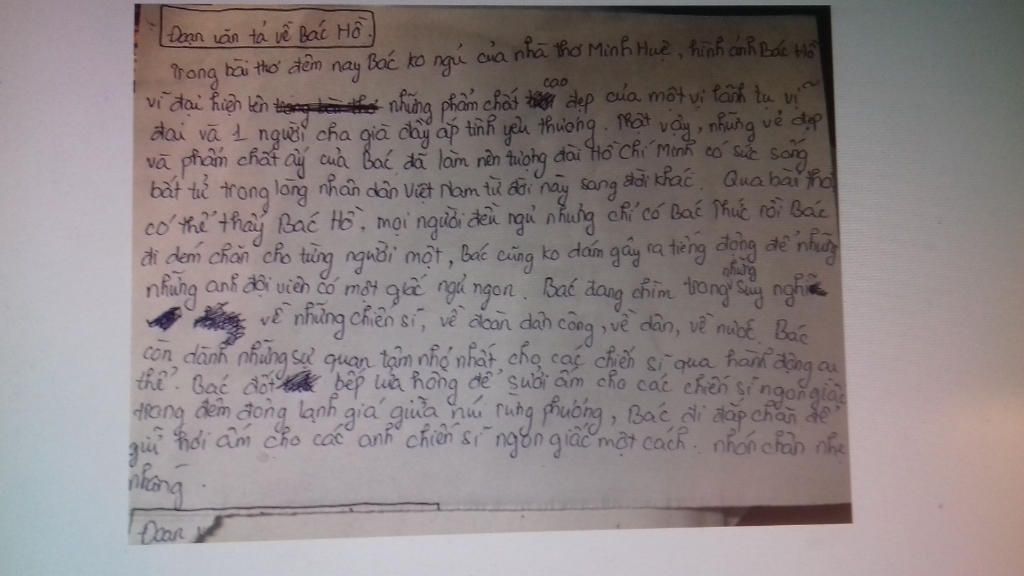 Đoạn văn tả về Bác Hồ.
Trong bài thơ đêm nay Bác ko ngủ của nhà thơ Minh Huệ, hình ảnh Bác Hồ
vĩ đại hiện lên những phẩm chất cao đẹp của một vị lãnh tụ vĩ
đại và 1 người cha già đầy ắp tình yêu thương. Thật vậy, những vẻ đẹp
và phẩm chất ấy của Bác đã làm nên tượng đài Hồ Chí Minh có sức sống
bất tử trong lòng nhân dân Việt Nam từ đời này sang đời khác. Qua bài thơ
có thể thấy Bác Hồ, mọi người đều ngủ nhưng chỉ có Bác thức rồi Bác
đi dém chăn cho từng người một, Bác cũng ko dám gây ra tiếng động để những
những anh đội viên có một giấc ngủ ngon. Bác đang chìm trong những suy nghĩ
về những chiến sĩ, về đoàn dân công, về dân, về nước. Bác
còn dành những sự quan tâm nhỏ nhất cho các chiến sĩ qua hành động cụ
thể. Bác đốt bếp lửa hồng để sưởi ấm cho các chiến sĩ ngon giấc
trong đêm đông lạnh giá giữa núi rừng phương, Bác đi đắp chăn để
giữ hơi ấm cho các anh chiến sĩ ngon giấc một cách. nhón chân nhẹ
nhàng.
Đoạn